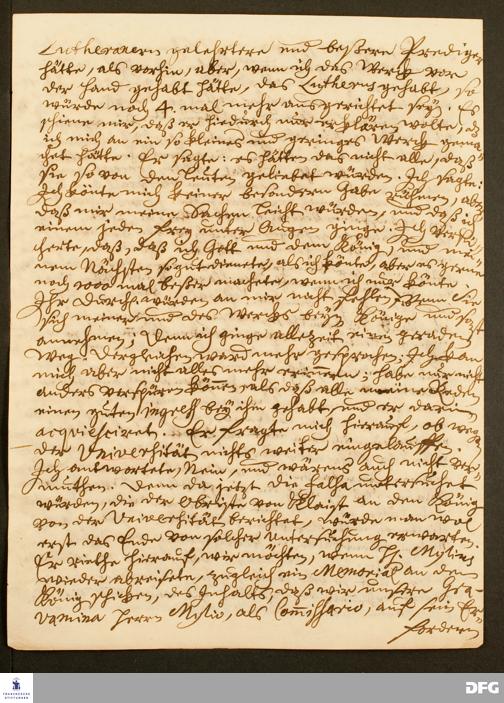 Lutheranern gelehrtere und beßere Prediger
hätte, als vorhin, aber, wenn ich das Werck vor
der Hand gehabt hätte, das Lutherus gehabt, so
würde noch 4. mal mehr ausgerichtet seyn. Es
schiene mir, daß er hiedurch nur erklären wolte, daß
ich mich an ein so kleines und geringes Werck gema-
chet hätte. Er sagte: es hätten das nicht alle, daß
sie so von den Leuten geliebet würden. Ich sagte:
Ich könte mich keiner besondern Gabe rühmen, als
daß mir meine Sachen leicht würden, und daß ich
einem jeden frey unter Augen ginge. Ich versi-
cherte, daß ich Gott und dem König, und mei-
nem Nächsten so gut dienete, als ich könte, aber es gerne
noch 1000 mal beßer machete, wenn ich nur könte.
Ihr Durchl. würden an mir nicht fehlen, wenn Sie
sich meiner und des Wercks beym Könige und sonst
annehmen; denn ich ginge allezeit einen geraden
Weg. Dergleichen ward mehr gesprochen; Ich kan
mich aber nicht alles mehr erinnern; habe nur nicht
anders verspüren können, als daß alle meine Reden
einen guten ingress bey ihm gehabt und er darin
acquiesciret. Er fragte mich hierauf, ob wegen
der Universität nichts weiter eingelauffen.
Ich antwortete, Nein, und wäre es auch nicht ver-
muthen. Denn da jetzt die Sache untersuchet
würden, die der Obriste von Kleist an den König
von der Universität berichtet, würde man wol
erst das Ende von solcher Untersuchung erwarten.
Er riethe hierauf, wir möchten, wenn H. Mylius
wieder abreisete, zugleich ein Memorial an den
König schicken, des Inhalts, daß wir unsere Gra-
vamina Herrn Mylio, als Commissario, auf sein Er-
fordern
FRANCKESCHE
STIFTUNGEN
DFG